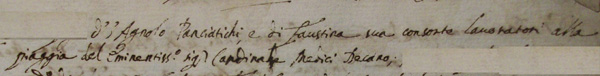 D'Agnolo Panciatichi e di Faustina sua consorte lavoratori alla
piaggia del Eminentiss.º Sig.r Cardinale Medici Decano,